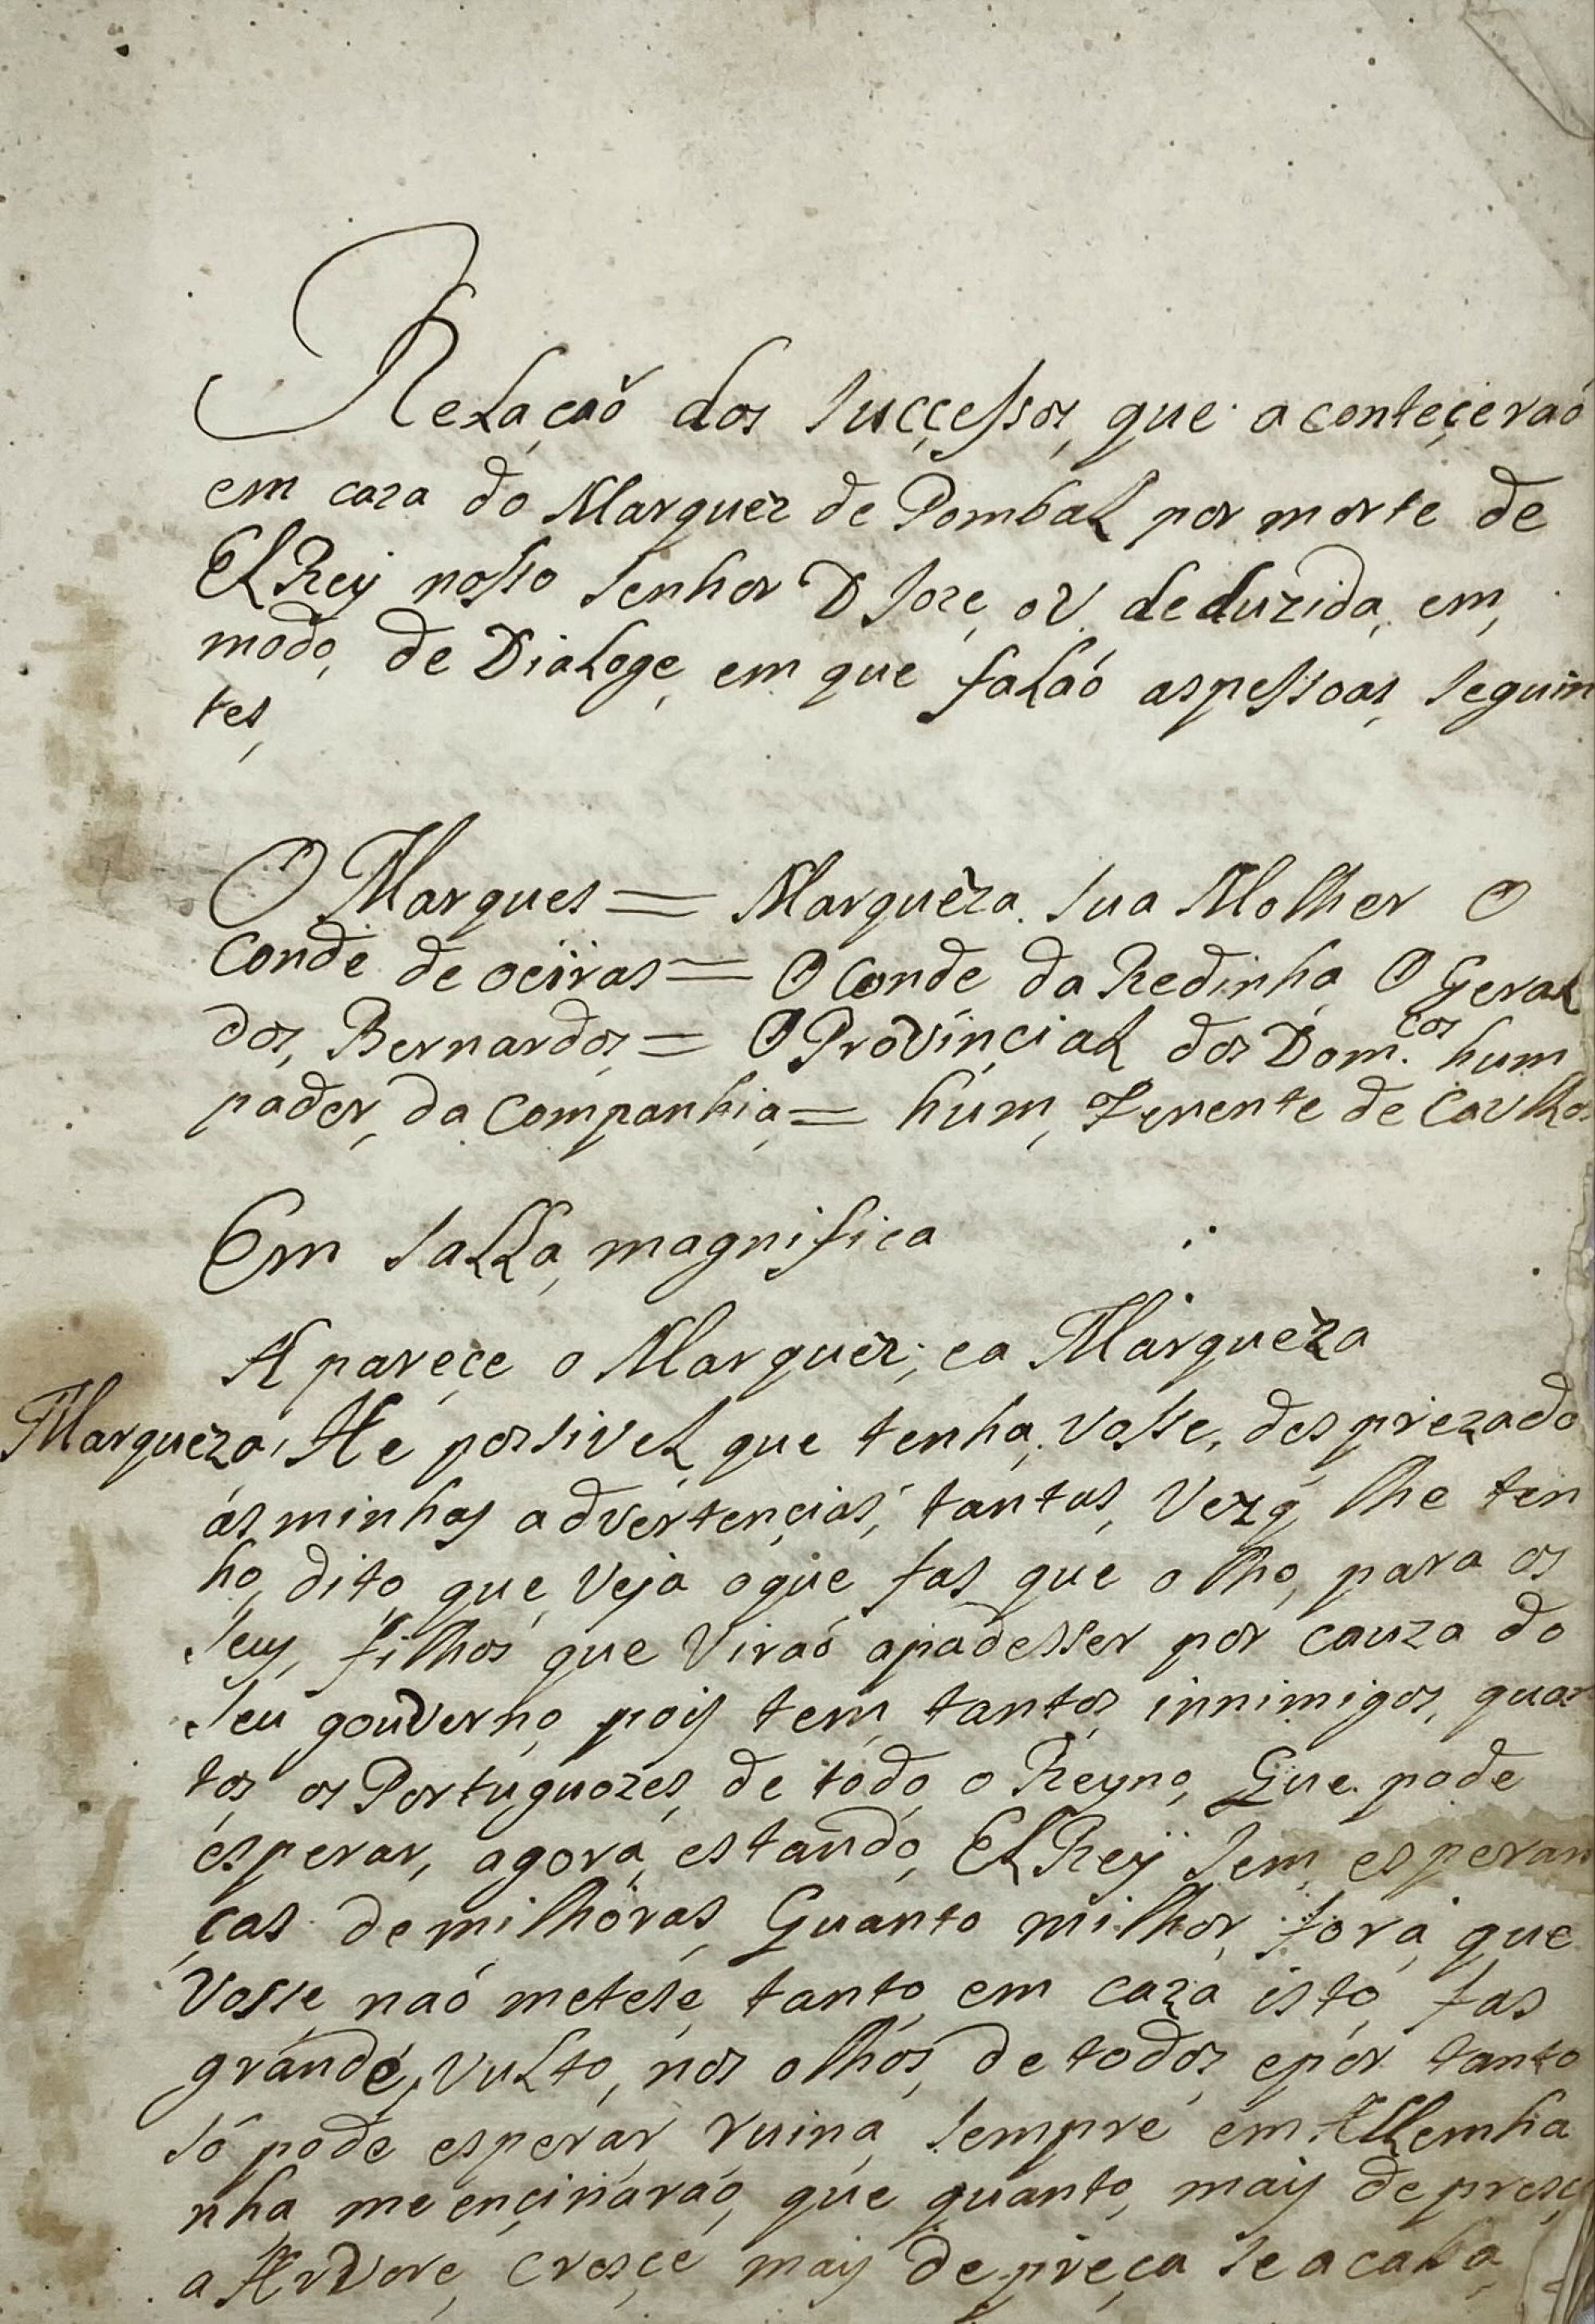 Relação dos Sucçessos, que aconteçeraõ
em caza do Marquez de Pombal por morte de
El Rey nosso Senhor D Joze, ou deduzida, em,
modo, de Dialoge, em que falaó as pessoas, Seguin
tes,
O Marques = Marquèza. Sua Molher O
Conde de oeiras = O Conde da Redinha, O Geral
dos, Bernardos, = O Provinçial dos Dom.cos hum
pader, da Companhia, = húm, Tenente de Cavllo
Em Salla, magnifica
Apareçe o Marquez; ea Marquèza
Marqueza, He possivel, que tenha, Vosse, desprezado
as, minhas advertençias, tantas, Vez q lhe ten
ho, dito, que, Veja oque fas que olho, para os
Seus, filhos que Viraó apadesser por cauza do
Seu gouverno, pois tem, tantos, innimigos, quan
tos, os Portuguozes, de todo, o Reyno, Que pode
esperar, agora, estando, El Rey Sem, esperan
ças demilhóras, Quanto milhor, fora, que
Vosse, naó metese, tanto, em caza isto, fas
grande, vulto, nos olhos, de todos, epor tanto
Só pode esperar, ruina, Sempre em Allemha
nha, me ençinaraó, que quanto, mais depresç
a Arvore, Cresçe mais depreça Se acaba,